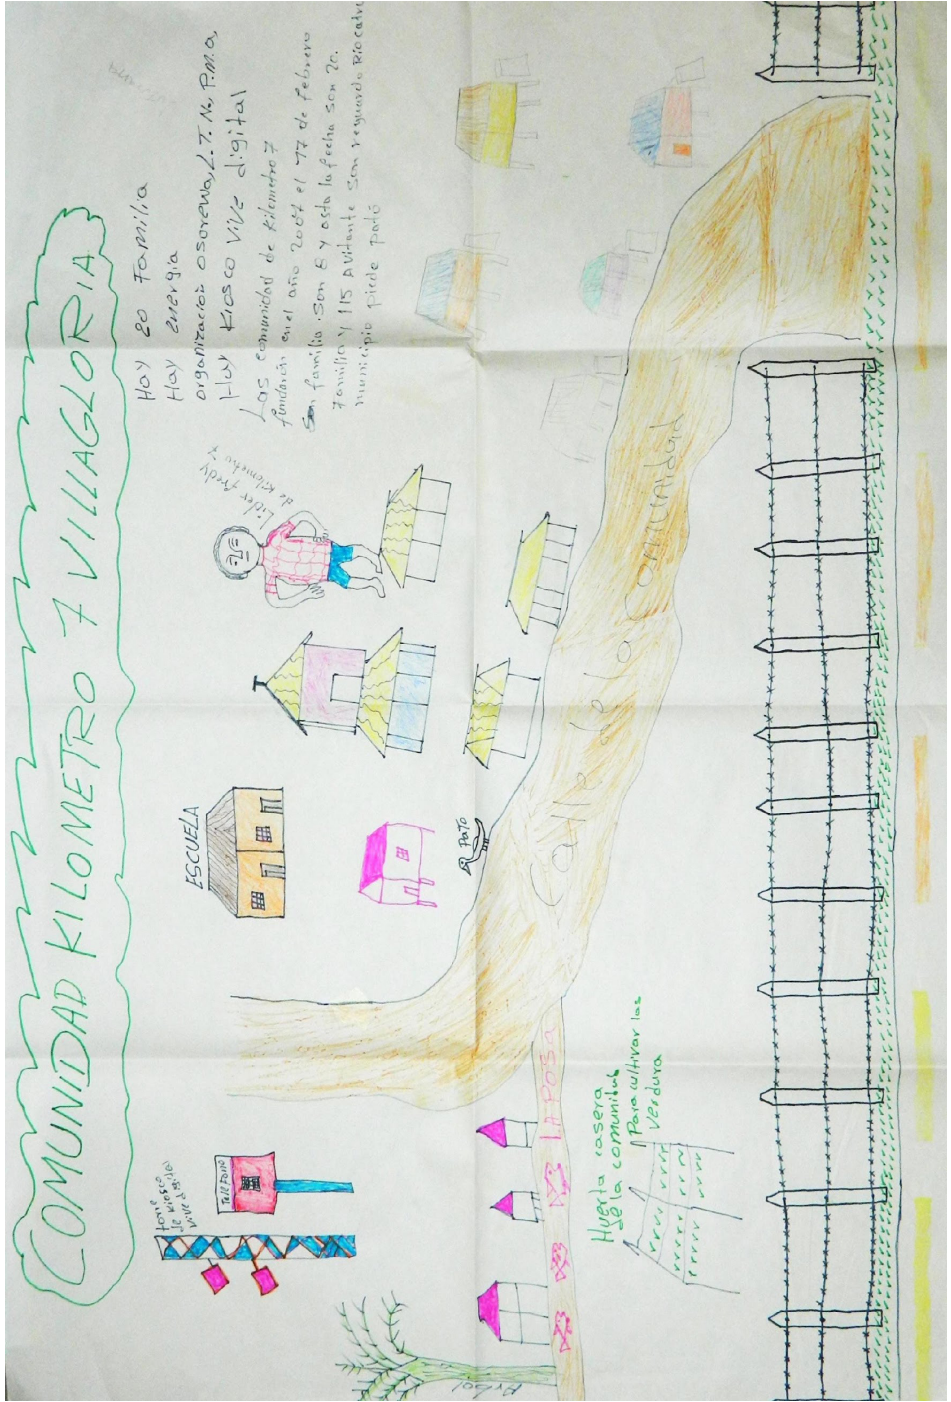 COMUNIDAD KILOMETRO 7 VILLAGLORIA
Hay 20 Familia
Hay energia
organizacion osorewa, L.T.N, P.M.A,
Hay Kiosco vive digital
Las comunidad de Kilometro 7
fundaron en el año 2001 el 17 de febrero
Son familia. Son 8 y asta la fecha son 20.
Familia y 115 avitante son reguardo Riocatru
municipio piede pató
Lider fredy
de Kilometro 7
ESCUELA
PATO
torre
de kiosco
vive digital
TeleFono
Calle de la Comunidad
LA POSA
Arbol
Huerta casera
de la comunidad
Para cultivar las
verdura